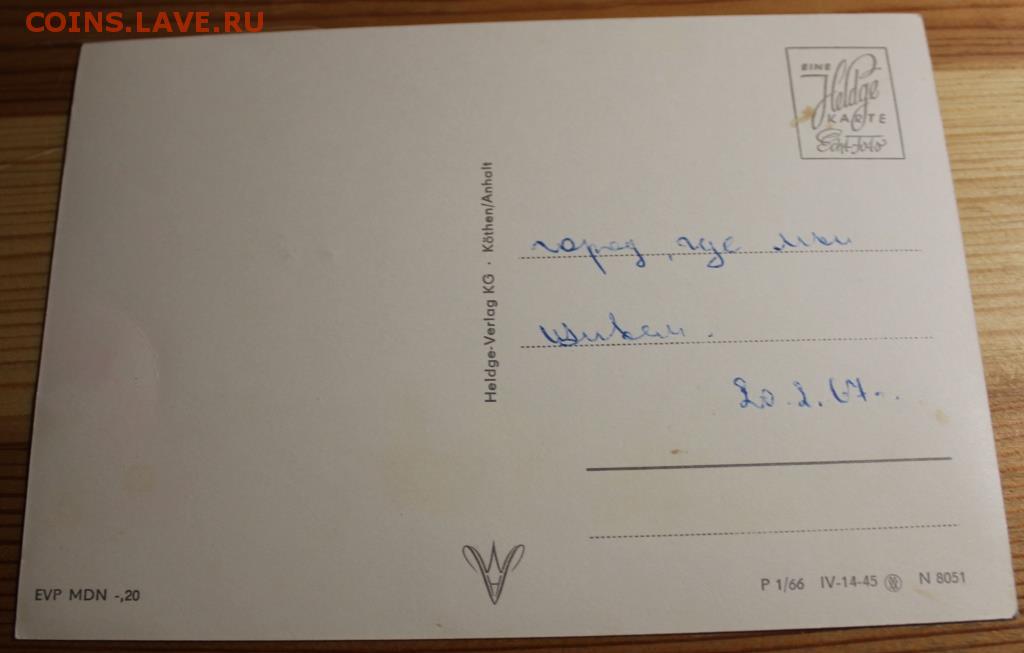 COINS.LAVE.RU
EINE
Heldge
KARTE
Echt-foto
Heldge-Verlag KG · Köthen/Anhalt
город, где мы
живем.
20.2.67.
EVP MDN -,20
P 1/66 IV-14-45 N 8051